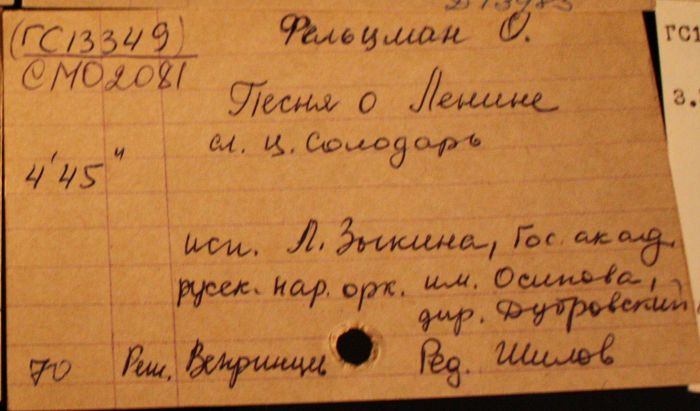 (ГС13349)
СМ02081
Фельцман О.
Песня о Ленине
сл. Ц. Солодарь
4'45"
исп. Л. Зыкина, Гос. акад.
русск. нар. орк. им. Осипова,
дир. Дубровский
70 Реж. Вепринцев Ред. Шилов
ГС1
3.